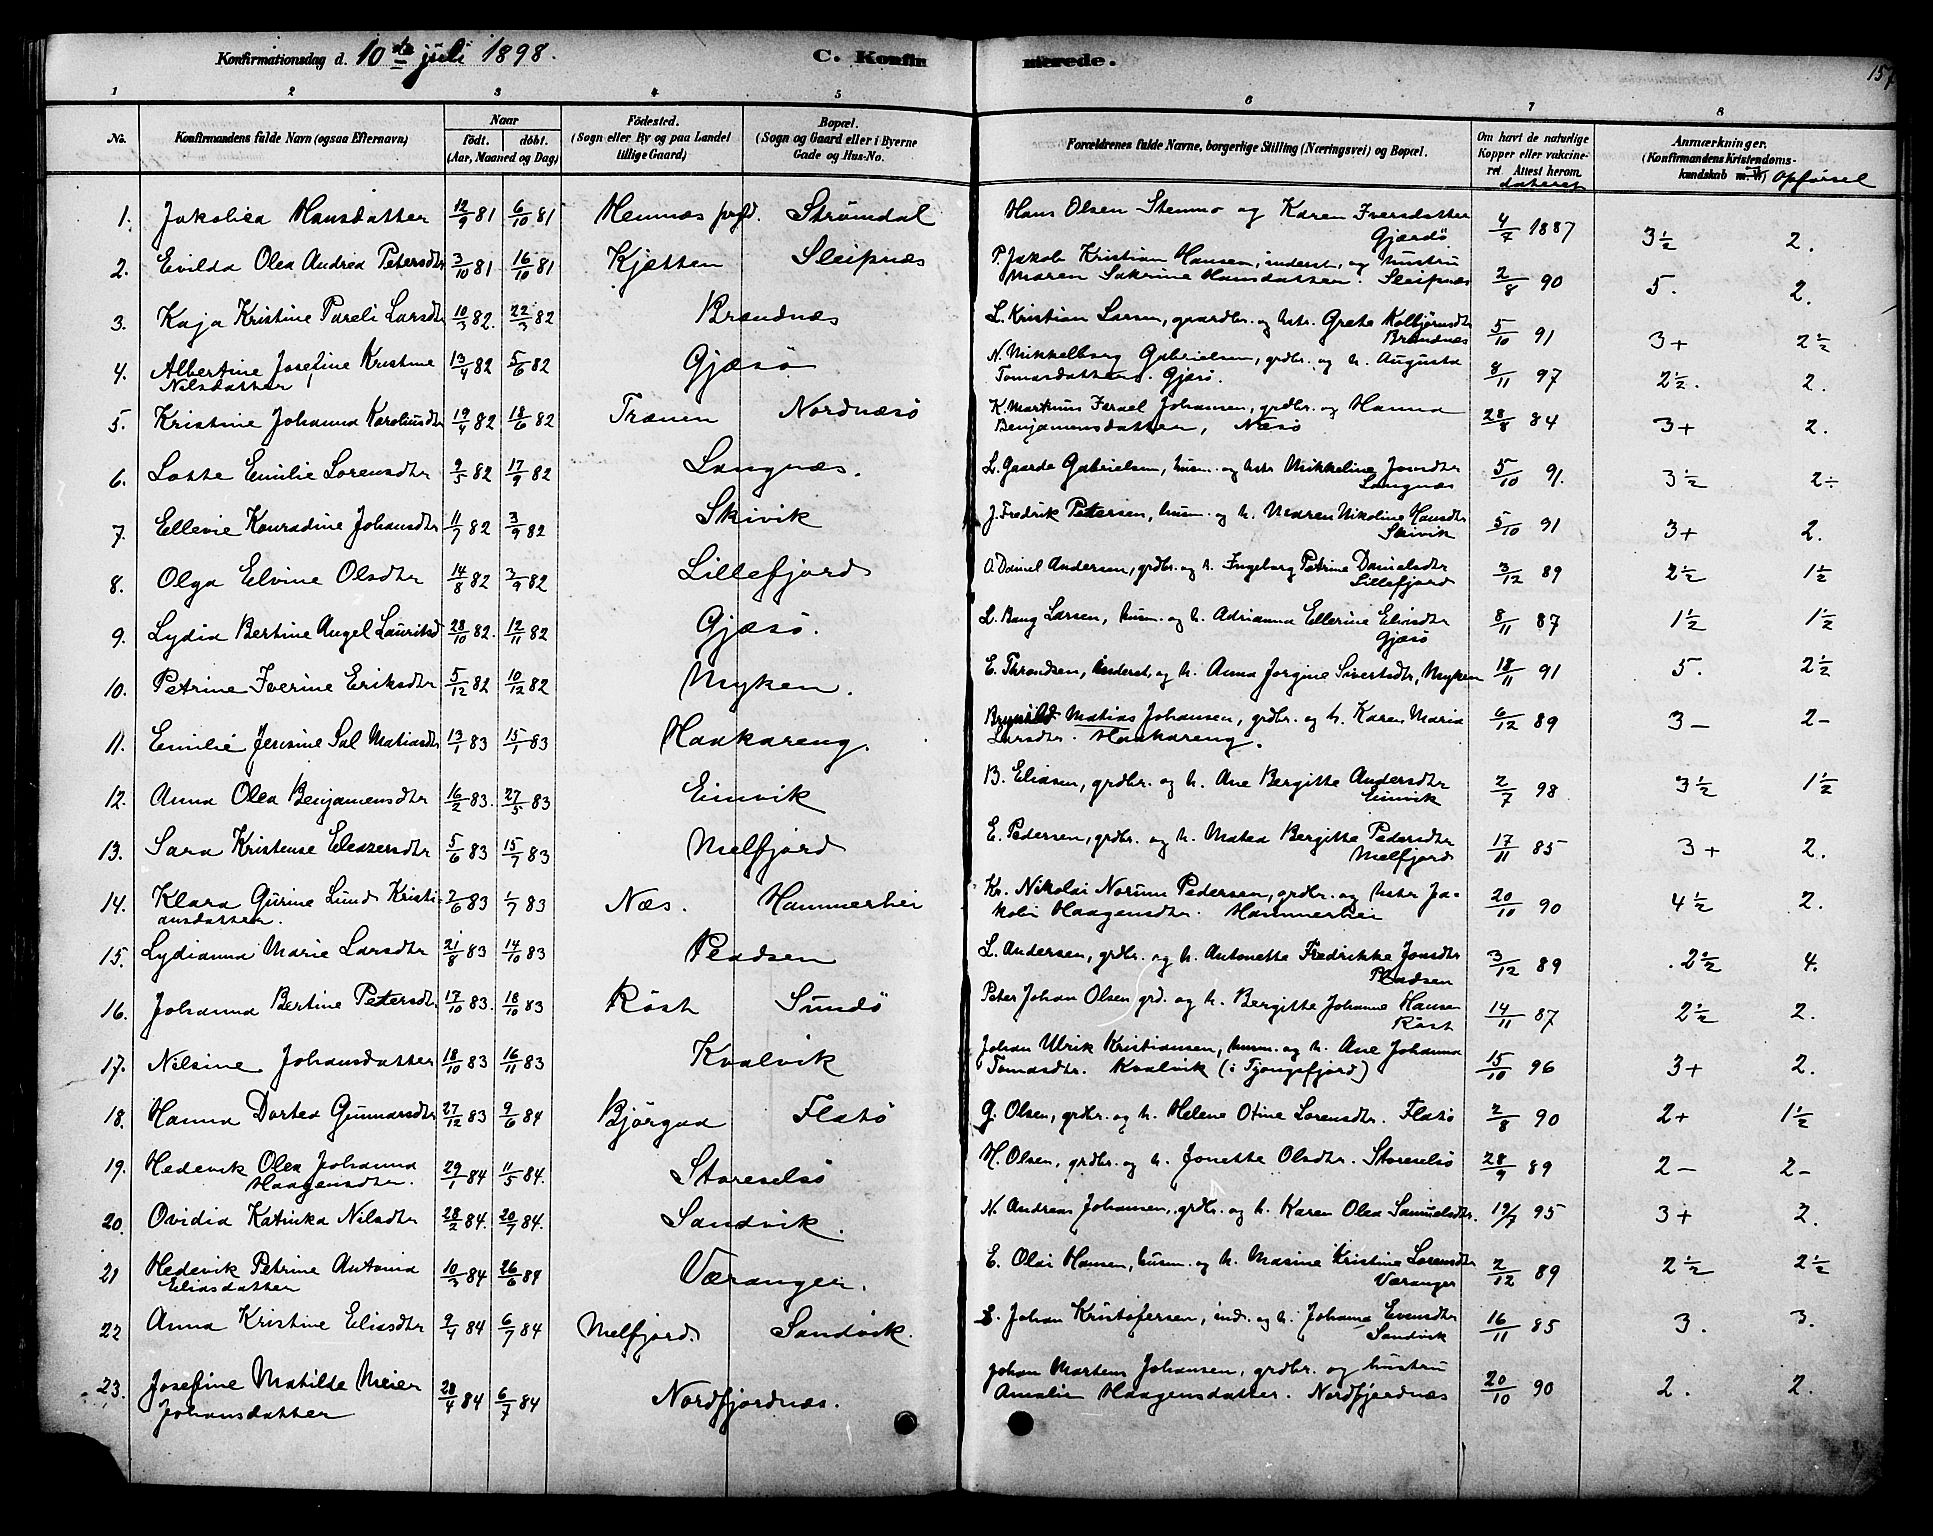 Konfirmationsdag d. 10de juli 1898. C. Konfirmerede. 157
1 2 3 4 5 6 7 8
No. Konfirmandens fulde Navn (ogsaa Efternavn) Naar født. døbt. (Aar, Maaned og Dag) Fødested. (Sogn eller By og paa Landet tillige Gaard) Bopæl. (Sogn og Gaard eller i Byerne Gade og Hus-No. Forældrenes fulde Navne, borgerlige Stilling (Næringsvei) og Bopæl. Om havt de naturlige Kopper eller vakcineret Attest herom dateret Anmærkninger. (Konfirmandens Kristendomskundskab m. V.) Opførsel
1. Jakobea Hansdatter 12/9 81 6/10 81 Hemnæs prgld. Strømdal Hans Olsen Stenmo og Karen Iversdatter
Gjærdø 4/7 1887 3½ 2.
2. Evilda Olea Andrea Petersdtr 3/10 81 16/10 81 Kjætten Sleipnæs P. Jakob Kristian Hansen, inderst, og hustru
Maren Sakrine Hansdatter. Sleipnæs 2/8 90 5. 2.
3. Kaja Kristine Pareli Larsdtr 10/3 82. 22/3 82 Brændnæs L. Kristian Larsen, gaardbr. og hstr. Grete Kolbjørnsdtr
Brændnæs 5/10 91 3+ 2½
4. Albertine Josefine Kristine 13/4 82 5/6 82 Gjæsø N. Mikkelborg Gabrielsen, grdbr. og h. Augusta
Nilsdatter Tomasdatter. Gjæsø. 8/11 97 2½. 2.
5. Kristine Johanna Karoliusdtr 19/4 82 18/6 82 Trænen Nordnæsø K. Markus Israel Johansen, grdbr. og Hanna
Benjamensdatter, Næsø 28/8 84 3+ 2.
6. Lotte Emilie Lorensdtr 9/5 82 17/9 82 Langnæs. L. Gaarde Gabrielsen, husm. og hstr Mikkeline Jonsdtr
Langnæs 5/10 91. 3½ 2÷
7. Ellevie Konradine Johansdtr 11/7 82 3/9 82 Skivik J. Fredrik Petersen, husm. og h. Maren Nikoline Hansdtr
Skivik 5/10 91 3+ 2.
8. Olga Elvine Olsdtr 14/8 82 3/9 82 Lillefjord O. Daniel Andersen, grdbr. og h. Ingeborg Petrine Danielsdtr
Lillefjord 3/12 89 2½ 1½
9. Lydia Bertine Angel Lauritsd 28/10 82. 12/11 82 Gjæsø. L. Bang Larsen, husm. og h. Adrianna Ellerine Eliasdtr
Gjæsø 8/11 87 1½ 1½
10. Petrine Iverine Eriksdtr 5/12 82 10/12 82 Myken. E. Throndsen, inderst, og h. Anna Jorgine Sivertsdtr, Myken 18/11 91 5. 2½
11. Emilie Jensine Sal Matiasdtr 13/1 83 15/1 83 Haakareng. Brynild Matias Johansen, grdbr. og h. Karen Maria
Larsdtr. Haakareng. 6/12 89 3— 2-
12. Anna Olea Benjamensdtr 16/2 83. 27/5 83 Eimvik B. Eliasen, grdbr. og h. Ane Bergitte Andersdtr
Eimvik 2/7 98 3½ 1½
13. Sara Kristense Eleazersdtr 5/6 83 15/7 83 Melfjord E. Pedersen, grdbr. og h. Matea Bergitte Pedersdtr
Melfjord 17/11 85 3+ 2.
14. Klara Gurine Lund Kristi- 2/6 83 1/7 83 Næs. Hammerhei Kr. Nikolai Norum Pedersen, grdbr. og hstr Ja-
ansdatter. kobi Haagensdtr. Hammerhei 20/10 90 4½ 2.
15. Lydianna Marie Larsdtr 21/8 83 14/10 83 Pladsen L. Andersen, grdbr. og h. Antonette Fredrikke Jonsdtr
Pladsen 3/12 89 2½ 4.
16. Johanna Bertine Petersdtr. 17/10 83. 18/10 83 Røst Sundø Peter Johan Olsen grd. og h. Bergitte Johanne Hansen
Røst 14/11 87 2½ 2.
17. Nilsine Johansdatter 18/10 83 16/11 83 Kvalvik Johan Ulrik Kristiansen, husm. og h. Ane Johanna
Tomasdtr. Kvalvik (i Tjongsfjord) 15/10 96 3+ 2.
18. Hanna Dortea Gunnarsdtr 27/12 83 9/6 84 Bjørgaa Flatø G. Olsen, grdbr. og h. Helene Otine Lorensdtr. Flatø 2/8 90 2+ 1½
19. Hedevik Olea Johanna 29/1 84 11/5 84. Storeselsø H. Olsen, grdbr. og h. Jonette Olsdtr. Storeselsø 28/9 89 2— 2-
Haagensdtr.
20. Ovidia Katinka Nilsdtr 28/2 84. 20/7 84. Sandvik. N. Andreas Johansen, grdbr. og h. Karen Olea Samuelsdtr. 19/7 95 3+ 2.
21 Hedevik Petrine Antonia 10/3 84 26/6 84 Væranger. E. Olai Hansen, husm. og h. Masine Kristine Lorensdtr
Eliasdatter Væranger 2/12 89 2½ 2½
22 Anna Kristine Eliasdtr 9/4 84 6/7 84 Melfjord. Sandvik. E. Johan Kristofersen, ind. og h. Johanna Evensdtr
Sandvik 16/11 85 3. 3.
23. Josefine Matilde Meier 28/4 84 6/7 84 Nordfjordnæs. Johan Martens Johansen, grdbr. og hustru
Johansdatter Amalie Haagensdatter. Nordfjordnæs 20/10 90 2. 2.